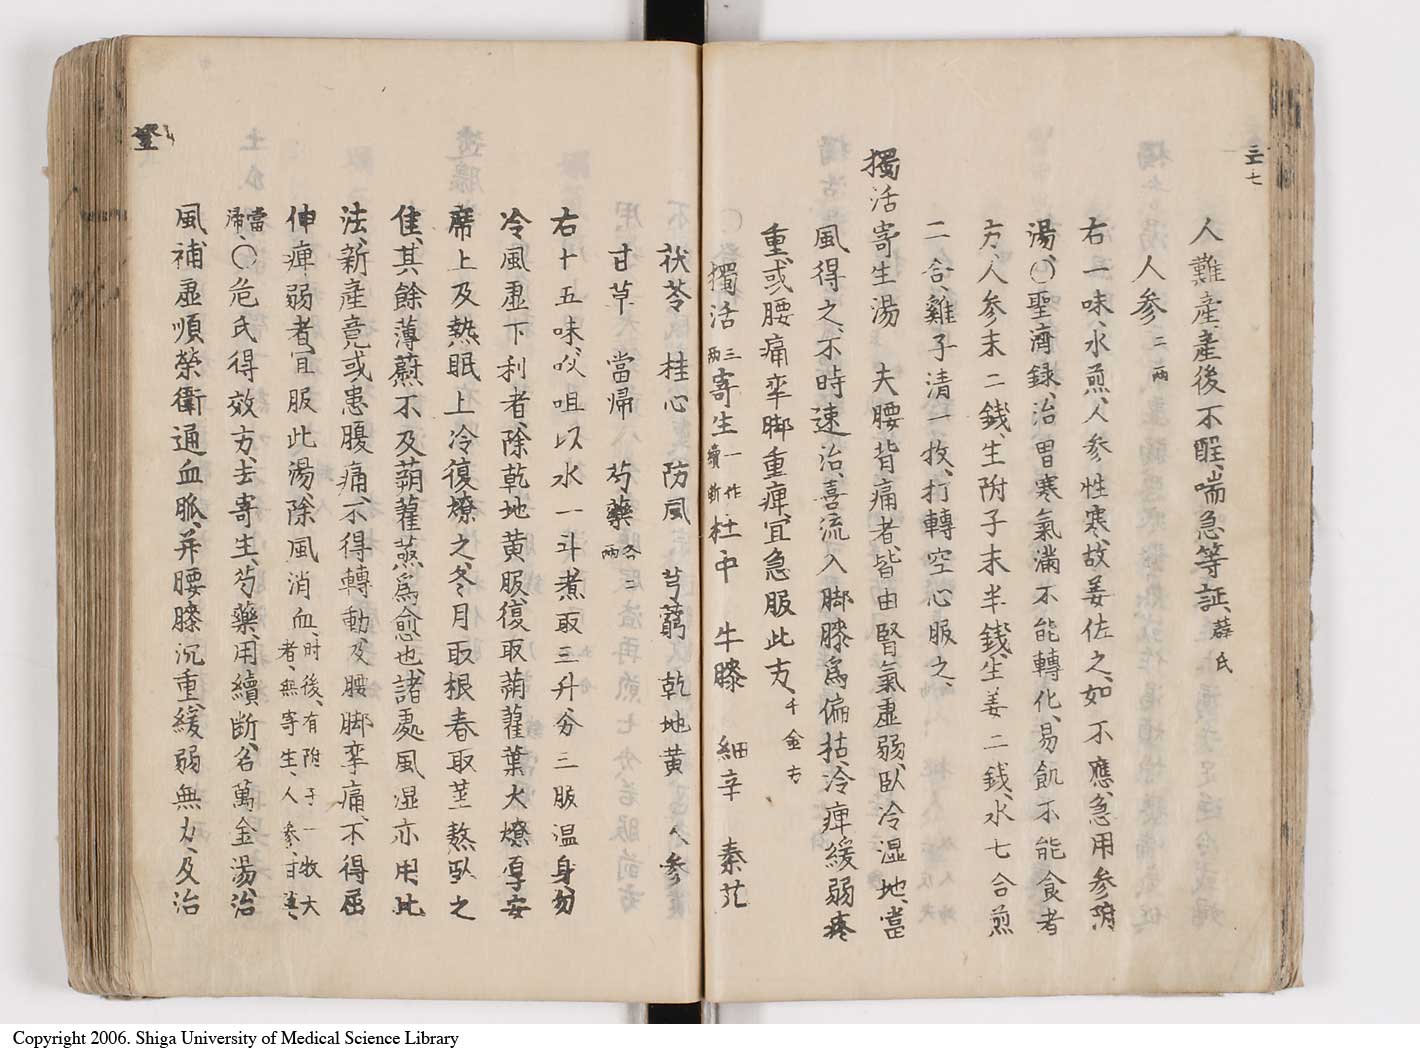 三七
人難産、産後不醒、喘急等証、薛氏
人参 二兩
右一味、水煎、人参性寒、故姜佐之、如不應、急用参附
湯、○聖濟録、治胃寒氣滿不能轉化、易飢不能食者
方、人参末二錢、生附子末半錢、生姜二錢、水七合煎
二合、雞子清一枚、打轉空心服之、
獨活寄生湯 夫腰背痛者、皆由腎氣虚弱、臥冷湿地、當
風得之、不時速治、喜流入脚膝爲偏枯、冷痺緩弱疼
重、或腰痛牽脚重痺、冝急服此方、千金方
獨活 三兩 寄生 一作續斷 杜中 牛膝 細辛 秦艽
茯苓 桂心 防風 芎藭 乾地黄 人参
甘草 當帰 芍藥 各二兩
右十五味、㕮咀以水一斗煮取三升、分三服温身勿
冷風虚下利者、除乾地黄服、復取蒴藋葉火燎厚安
席上及熱眠上冷復燎之、冬月取根春取茎熬臥之
佳、其餘薄䔾不及蒴藋蒸爲愈也、諸處風湿亦用此
法、新産竟或患腹痛、不得轉動、及腰脚攣痛、不得屈
伸痺弱者、冝服此湯、除風消血、肘後、有附子一枚大者、無寄生、人参、甘草、
當帰○危氏得效方、去寄生、芍藥、用續断、名萬金湯、治
風補虚順榮衛通血脈、并腰膝沉重、緩弱無力、及治